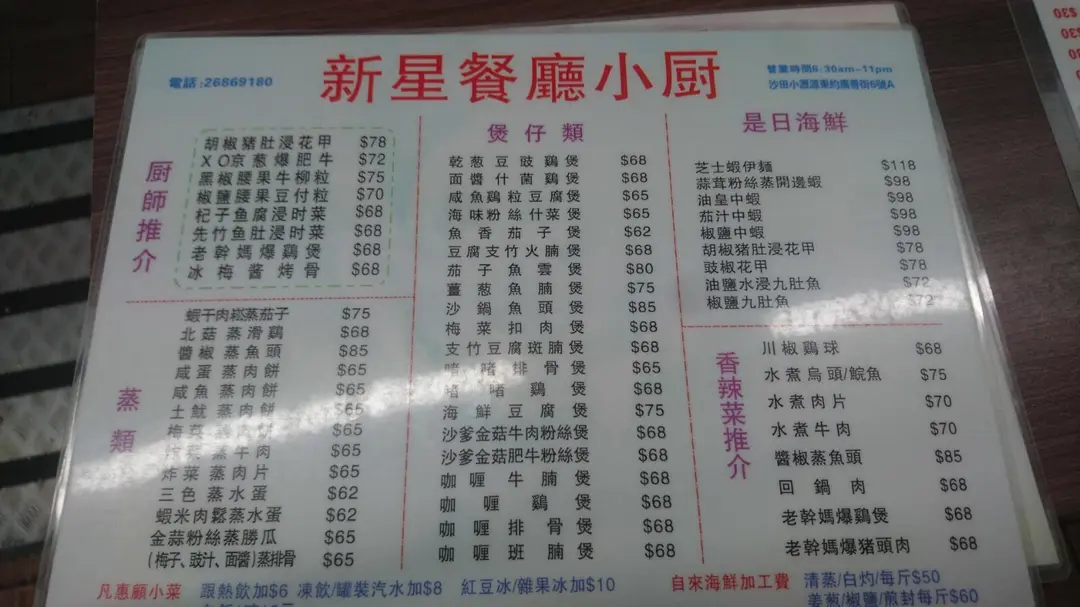 新星餐廳小厨
電話:26869180
營業時間6:30am-11pm
沙田小瀝源東約廣善街6號A
厨師推介
胡椒猪肚浸花甲 $78
XO京葱爆肥牛 $72
黑椒腰果牛柳粒 $75
椒鹽腰果豆付粒 $70
杞子鱼腐浸时菜 $68
先竹鱼肚浸时菜 $68
老幹媽爆鷄煲 $68
冰梅酱烤骨 $68
蒸類
蝦干肉崧蒸茄子 $75
北菇蒸滑鷄 $68
醬椒蒸魚頭 $85
咸蛋蒸肉餅 $65
咸魚蒸肉餅 $65
土魷蒸肉餅 $65
梅菜蒸肉餅 $65
蒸牛肉 $65
炸菜蒸肉片 $65
三色蒸水蛋 $62
蝦米肉鬆蒸水蛋 $62
金蒜粉絲蒸勝瓜 $65
(梅子、豉汁、面醬)蒸排骨 $65
煲仔類
乾葱豆豉鷄煲 $68
面醬什菌鷄煲 $68
咸魚鷄粒豆腐煲 $65
海味粉絲什菜煲 $65
魚香茄子煲 $62
豆腐支竹火腩煲 $68
茄子魚雲煲 $80
薑葱魚腩煲 $75
沙鍋魚頭煲 $85
梅菜扣肉煲 $68
支竹豆腐斑腩煲 $68
啫啫排骨煲 $65
啫啫鷄煲 $68
海鮮豆腐煲 $75
沙爹金菇牛肉粉絲煲 $68
沙爹金菇肥牛粉絲煲 $68
咖喱牛腩煲 $68
咖喱鷄煲 $68
咖喱排骨煲 $68
咖喱班腩煲 $68
是日海鮮
芝士蝦伊麵 $118
蒜茸粉絲蒸開邊蝦 $98
油皇中蝦 $98
茄汁中蝦 $98
椒鹽中蝦 $98
胡椒猪肚浸花甲 $78
豉椒花甲 $78
油鹽水浸九肚魚 $72
椒鹽九肚魚 $72
香辣菜推介
川椒鷄球 $68
水煮烏頭/鯇魚 $75
水煮肉片 $70
水煮牛肉 $70
醬椒蒸魚頭 $85
回鍋肉 $68
老幹媽爆鷄煲 $68
老幹媽爆猪頭肉 $68
凡惠顧小菜 跟熱飲加$6 凍飲/罐裝汽水加$8 紅豆冰/雜果冰加$10
自來海鮮加工費 清蒸/白灼/每斤$50
姜葱/椒鹽/煎封每斤$60